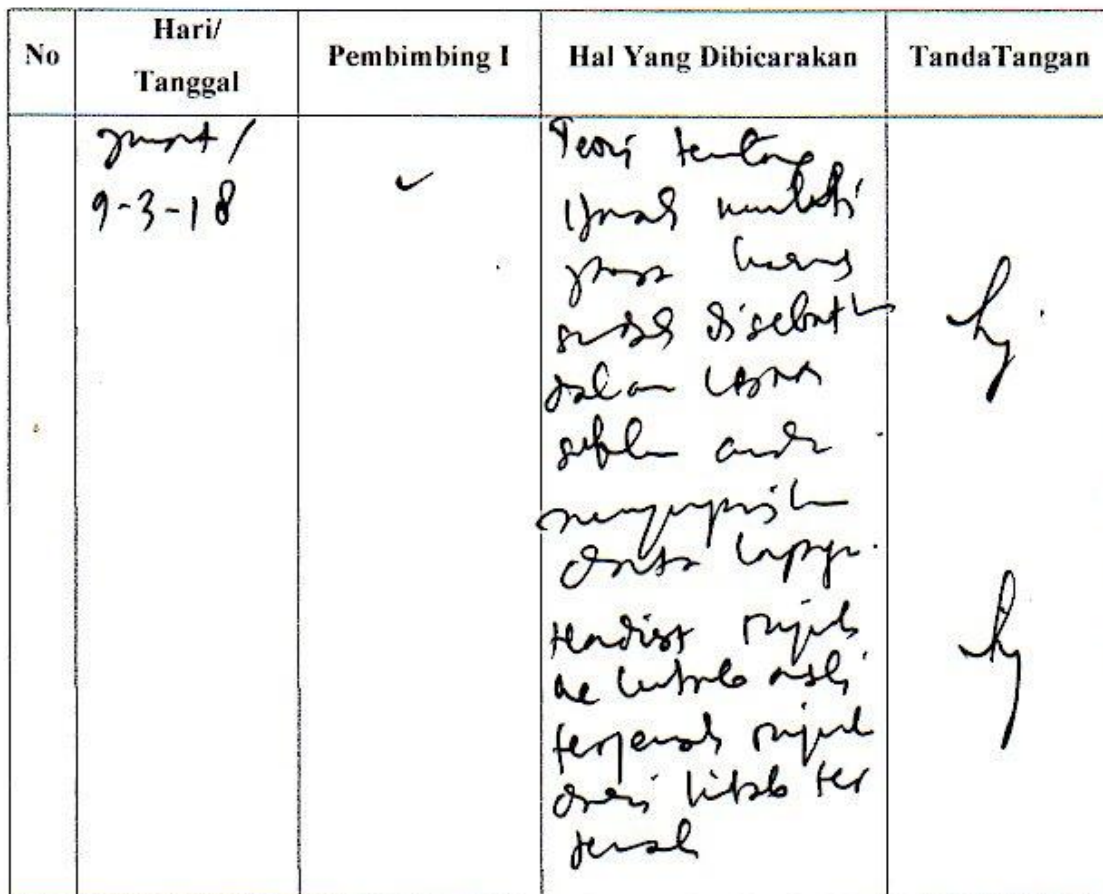 No
Hari/
Tanggal
Pembimbing I
Hal Yang Dibicarakan
TandaTangan
Jumat /
9-3-18
Teori tentang
harus
sudah disebutkan
dalam
sebelum anda
mengumpulkan
data lapangan.
Hadist rujuk
ke kitab asli
terjemah rujuk
dari kitab ter
jemah